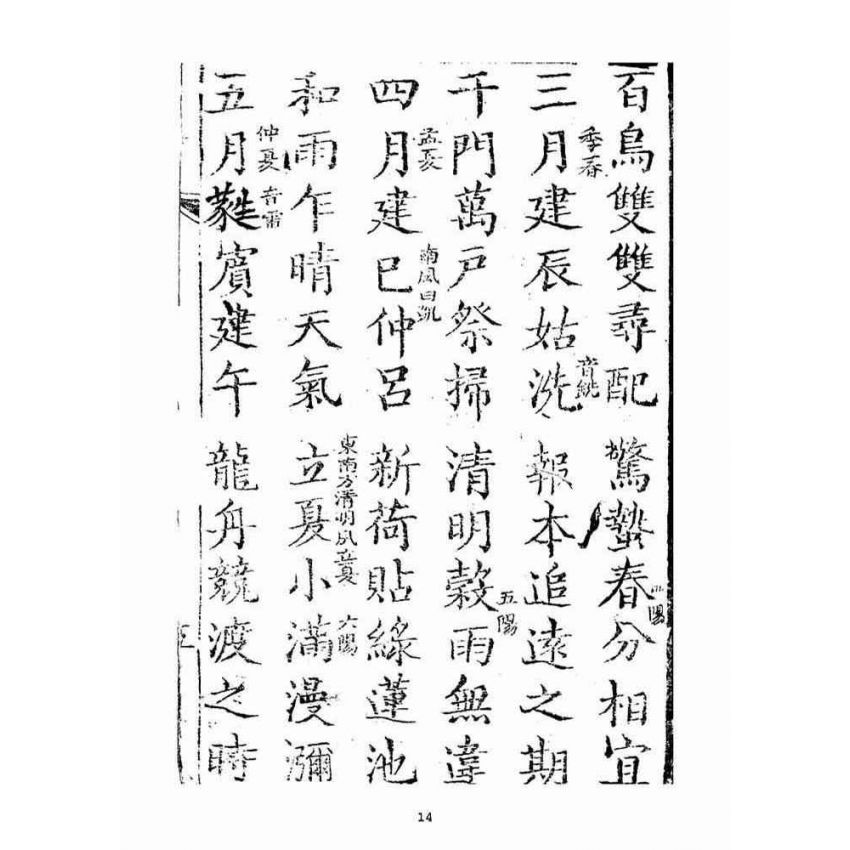 百鳥雙雙尋配 驚蟄春分相宜
四陽
三月建辰姑洗 報本追遠之期
季春
音銑
千門萬戶祭掃 清明穀雨無違
五陽
四月建巳仲呂 新荷貼綠蓮池
孟夏
南風曰凱
和雨乍晴天氣 立夏小滿漫瀰
東南方清明風立夏
六陽
五月蕤賓建午 龍舟競渡之時
仲夏
音甤
14